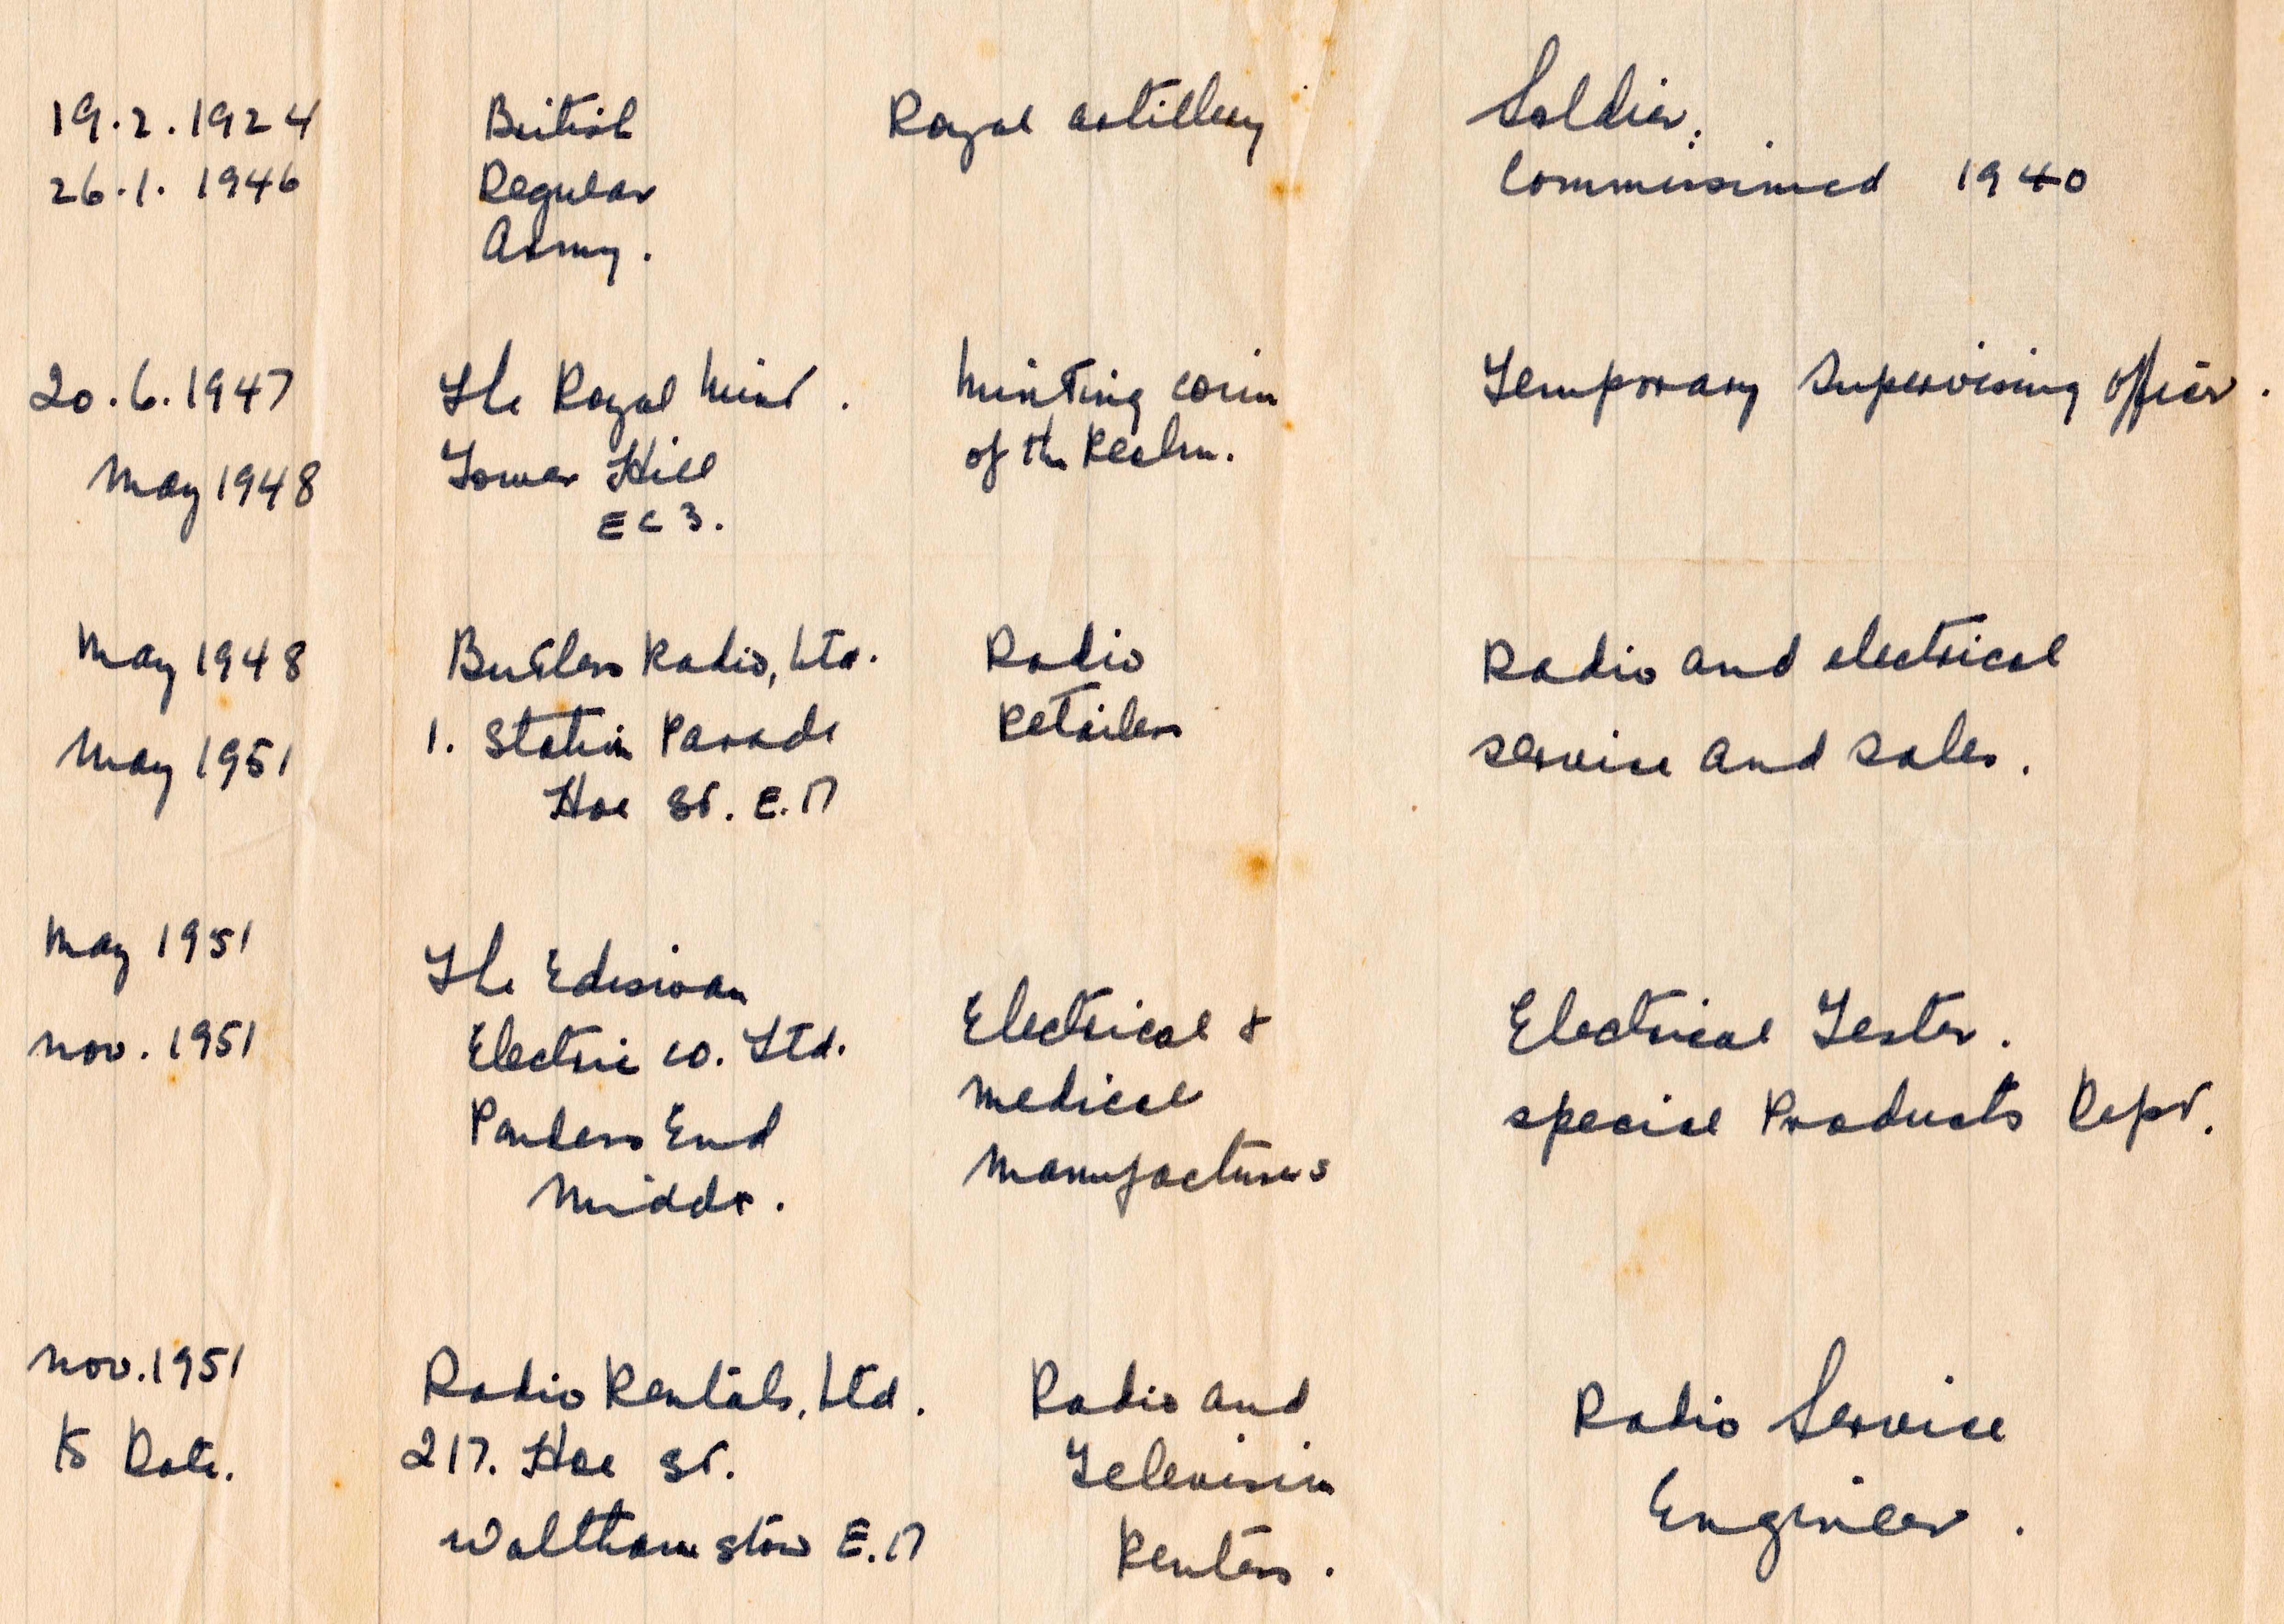 19.2.1924 British Royal Artillery Soldier.
26.1.1946 Regular Commissioned 1940
Army.
20.6.1947 The Royal Mint. Minting coin Temporary Supervising Officer.
May 1948 Tower Hill of the Realm.
EC3.
May 1948 Butlers Radio, Ltd. Radio Radio and electrical
May 1951 1. Station Parade Retailers service and sales.
Hoe St. E.17
May 1951 The Ediswan
Nov. 1951 Electric Co. Ltd. Electrical & Electrical Tester.
Ponders End Medical Special Products Dept.
Middx. Manufacturers
Nov. 1951 Radio Rentals, Ltd. Radio and Radio Service
to Date. 217. Hoe St. Television Engineer.
Walthamstow E.17 Renters.